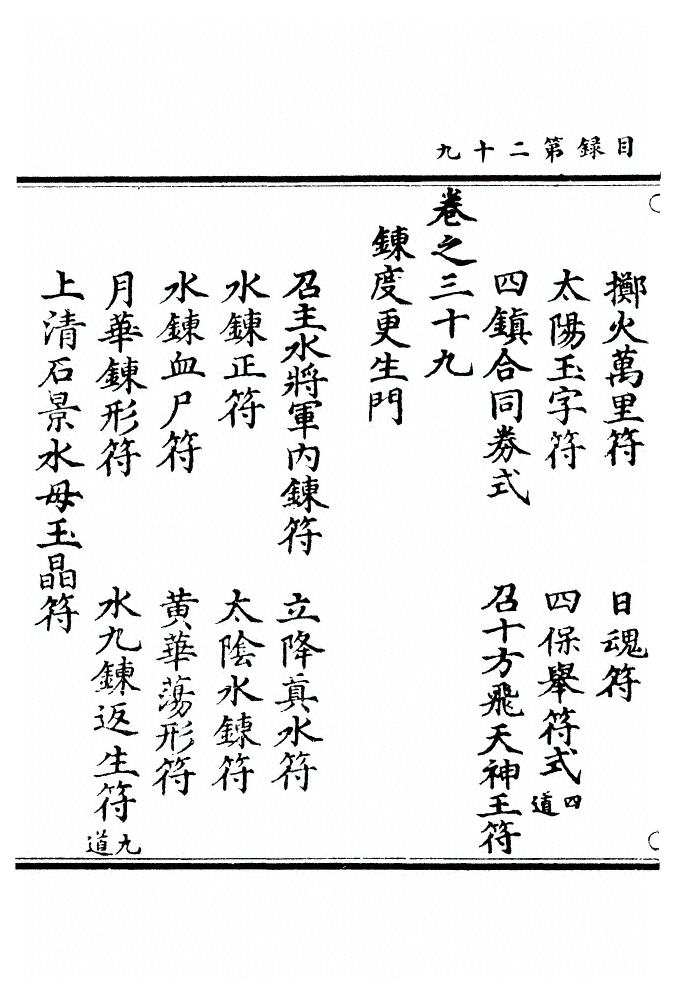 目錄第二十九
擲火萬里符　日魂符
太陽玉字符　四保舉符式四道
四鎮合同券式　召十方飛天神王符
卷之三十九
鍊度更生門
召主水將軍內鍊符　立降真水符
水鍊正符　太陰水鍊符
水鍊血尸符　黃華蕩形符
月華鍊形符　水九鍊返生符九道
上清石景水母玉晶符